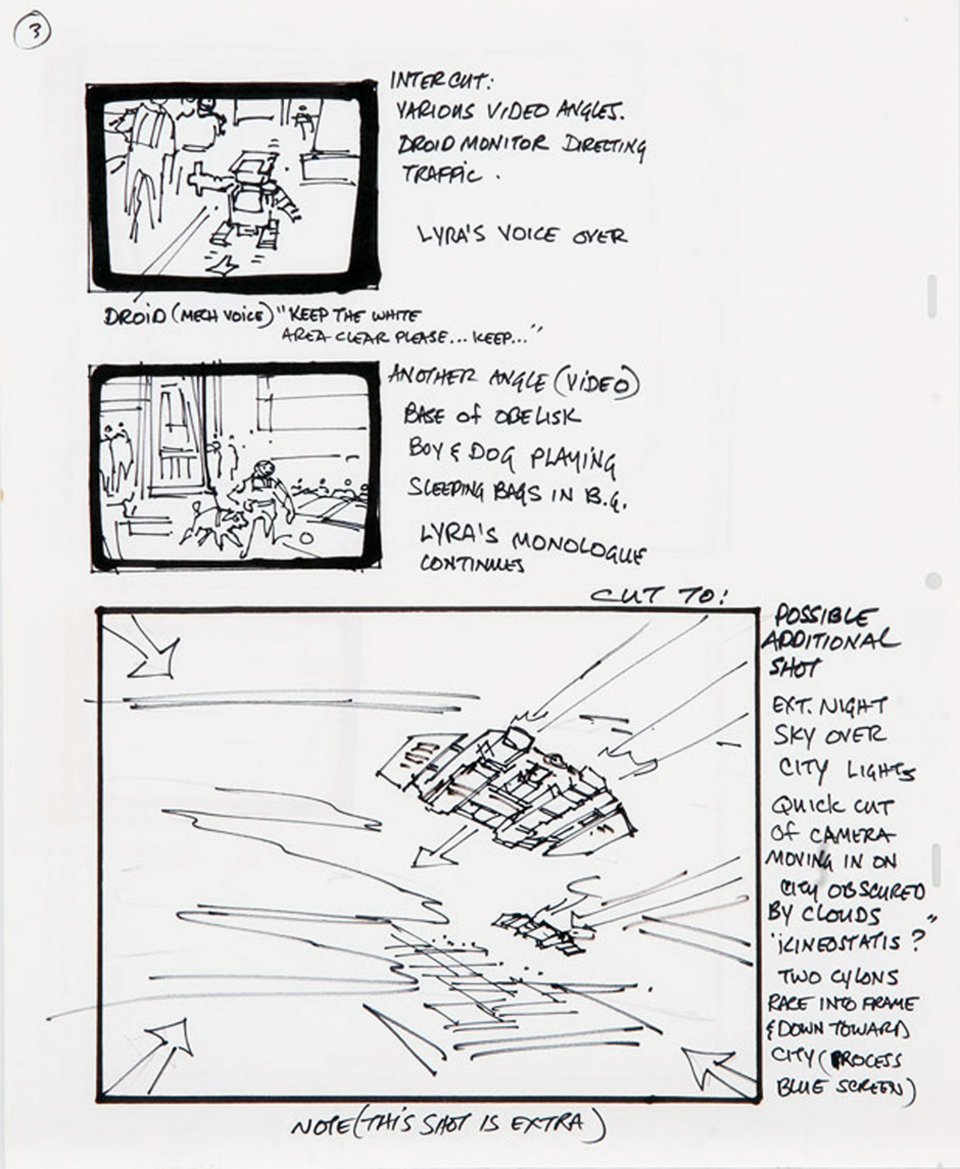 3
INTERCUT:
VARIOUS VIDEO ANGLES.
DROID MONITOR DIRECTING
TRAFFIC.
LYRA'S VOICE OVER
DROID (MECH VOICE) "KEEP THE WHITE
AREA CLEAR PLEASE... KEEP..."
ANOTHER ANGLE (VIDEO)
BASE OF OBELISK
BOY & DOG PLAYING
SLEEPING BAGS IN B.G.
LYRA'S MONOLOGUE
CONTINUES
CUT TO:
POSSIBLE
ADDITIONAL
SHOT
EXT. NIGHT
SKY OVER
CITY LIGHTS
QUICK CUT
OF CAMERA
MOVING IN ON
CITY OBSCURED
BY CLOUDS
TWO CYLONS
RACE INTO FRAME
& DOWN TOWARD
CITY (PROCESS
BLUE SCREEN)
NOTE (THIS SHOT IS EXTRA)